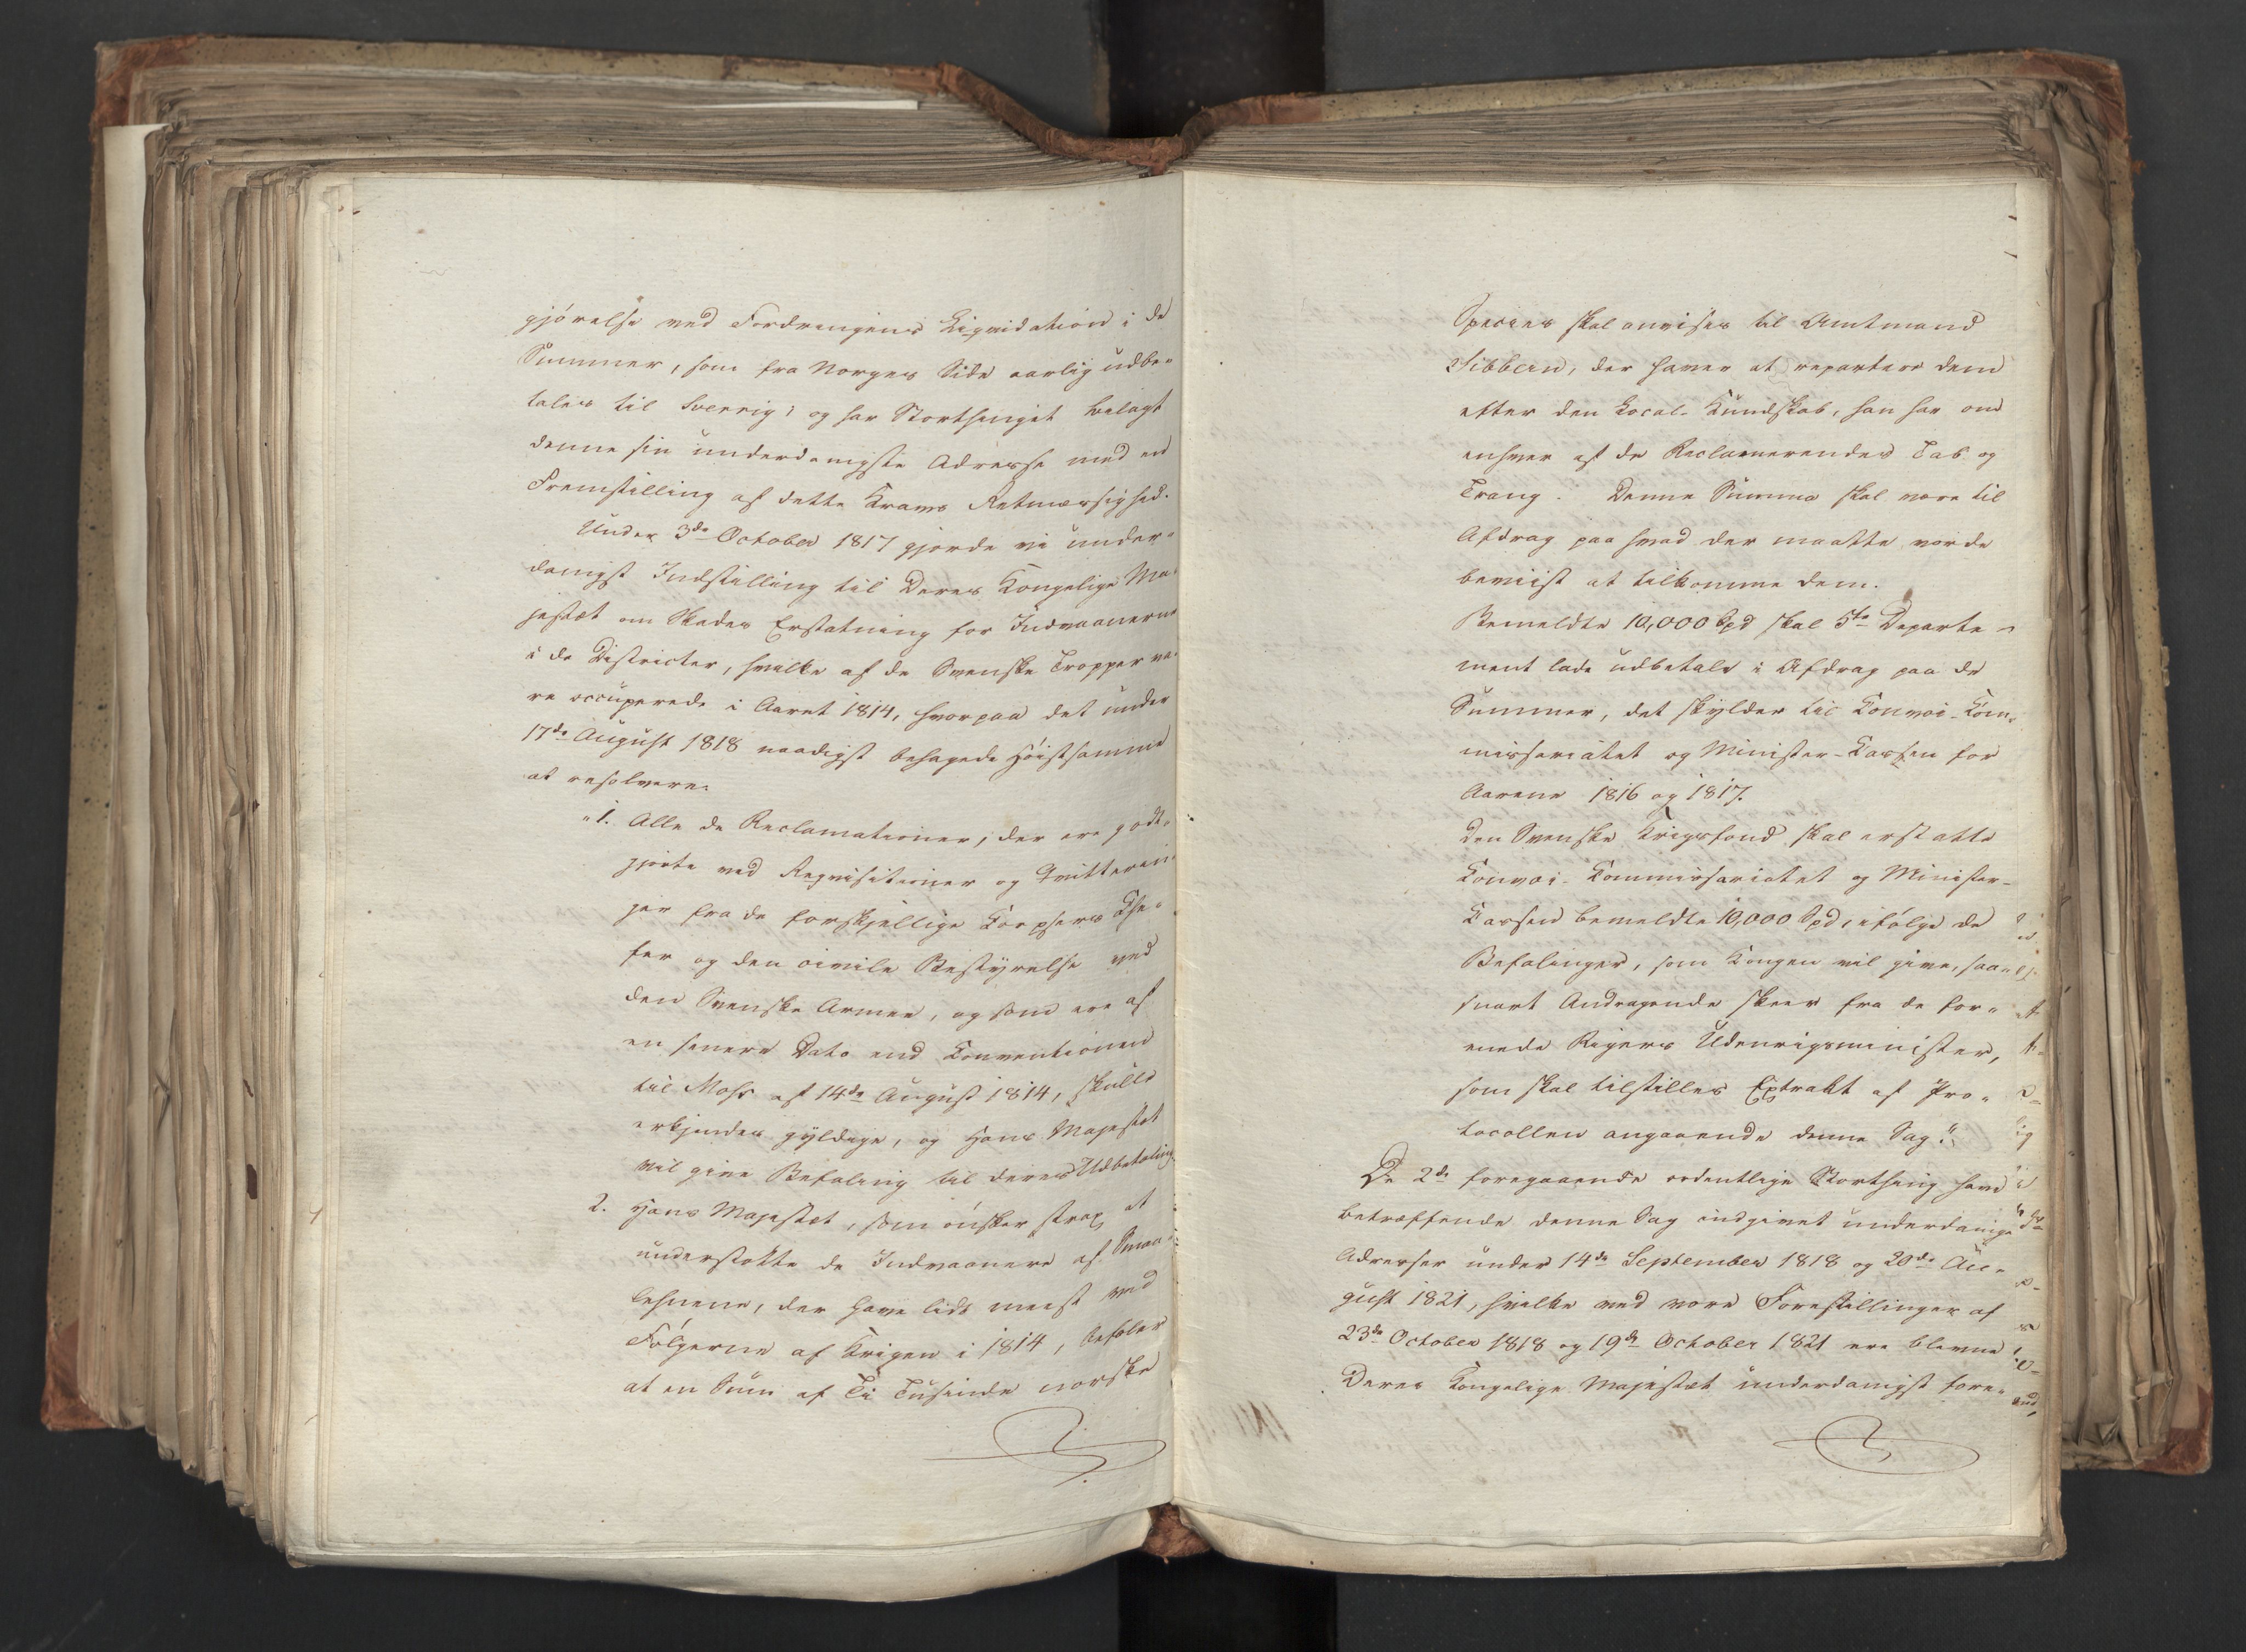 gjörelse ved Fordringens Liqvidation i de
Summer, som fra Norges Side aarlig udbe-
tales til Sverrig; og har Storthinget bilagt
denne sin underdanigste Adresse med en
Fremstilling af dette Kravs Retmæssighed.
Under 3de October 1817 gjorde vi under-
danigst Indstilling til Deres Kongelige Ma-
jestæt om Skades Erstatning for Indvaanerne
i de Districter, hvilke af de Svenske Tropper va-
re occuperede i Aaret 1814, hvorpaa det under
17de August 1818 naadigst behagede Höistsamme
at resolvere:
"1. Alle de Reclamationer, der ere godt-
gjorte ved Reqvisitioner og Qvitterin-
ger fra de forskjellige Corpsers Che-
fer og den civile Bestyrelse ved
den Svenske Armee, og som ere af
en senere Dato end Conventionen
til Moss af 14de August 1814, skulle
erkjendes gyldige, og Hans Majestæt
vil give Befaling til deres Udbetaling.
2. Hans Majestæt, som önsker strax at
understötte de Indvaanere af Smaa-
lehnene, der have lidt meest ved
Fölgerne af Krigen i 1814, befaler
at en Sum af Ti Tusinde norske
Species skal anvises til Amtmand
Sibbern, der haver at repartere dem
efter den Local-Kundskab, han har om
enhver af de Reclamerendes Tab og
Trang. Denne Summa skal være til
Afdrag paa hvad der maatte vorde
beviist at tilkomme dem.
Bemeldte 10,000 Spd skal 5te Departe-
ment lade udbetale i Afdrag paa de
Summer, det skylder til Convoi-Com-
missariatet og Minister-Cassen for
Aarene 1816 og 1817.
Den Svenske Krigsfond skal erstatte
Convoi-Commissariatet og Minister-
Cassen bemeldte 10,000 Spd, ifölge de
Befalinger, som Kongen vil give, saa-
snart Andragende skeer fra de for-
enede Rigers Udenrigsminister,
som skal tilstilles Extrakt af Pro-
tocollen angaaende denne Sag."
De 2de foregaaende ordentlige Storthing have
betræffende denne Sag indgivet underdanige
Adresser under 14de September 1818 og 20de Au-
gust 1821, hvilke ved vore Forestillinger af
23de October 1818 og 19de October 1821 ere blevne
Deres Kongelige Majestæt underdanigst fore-